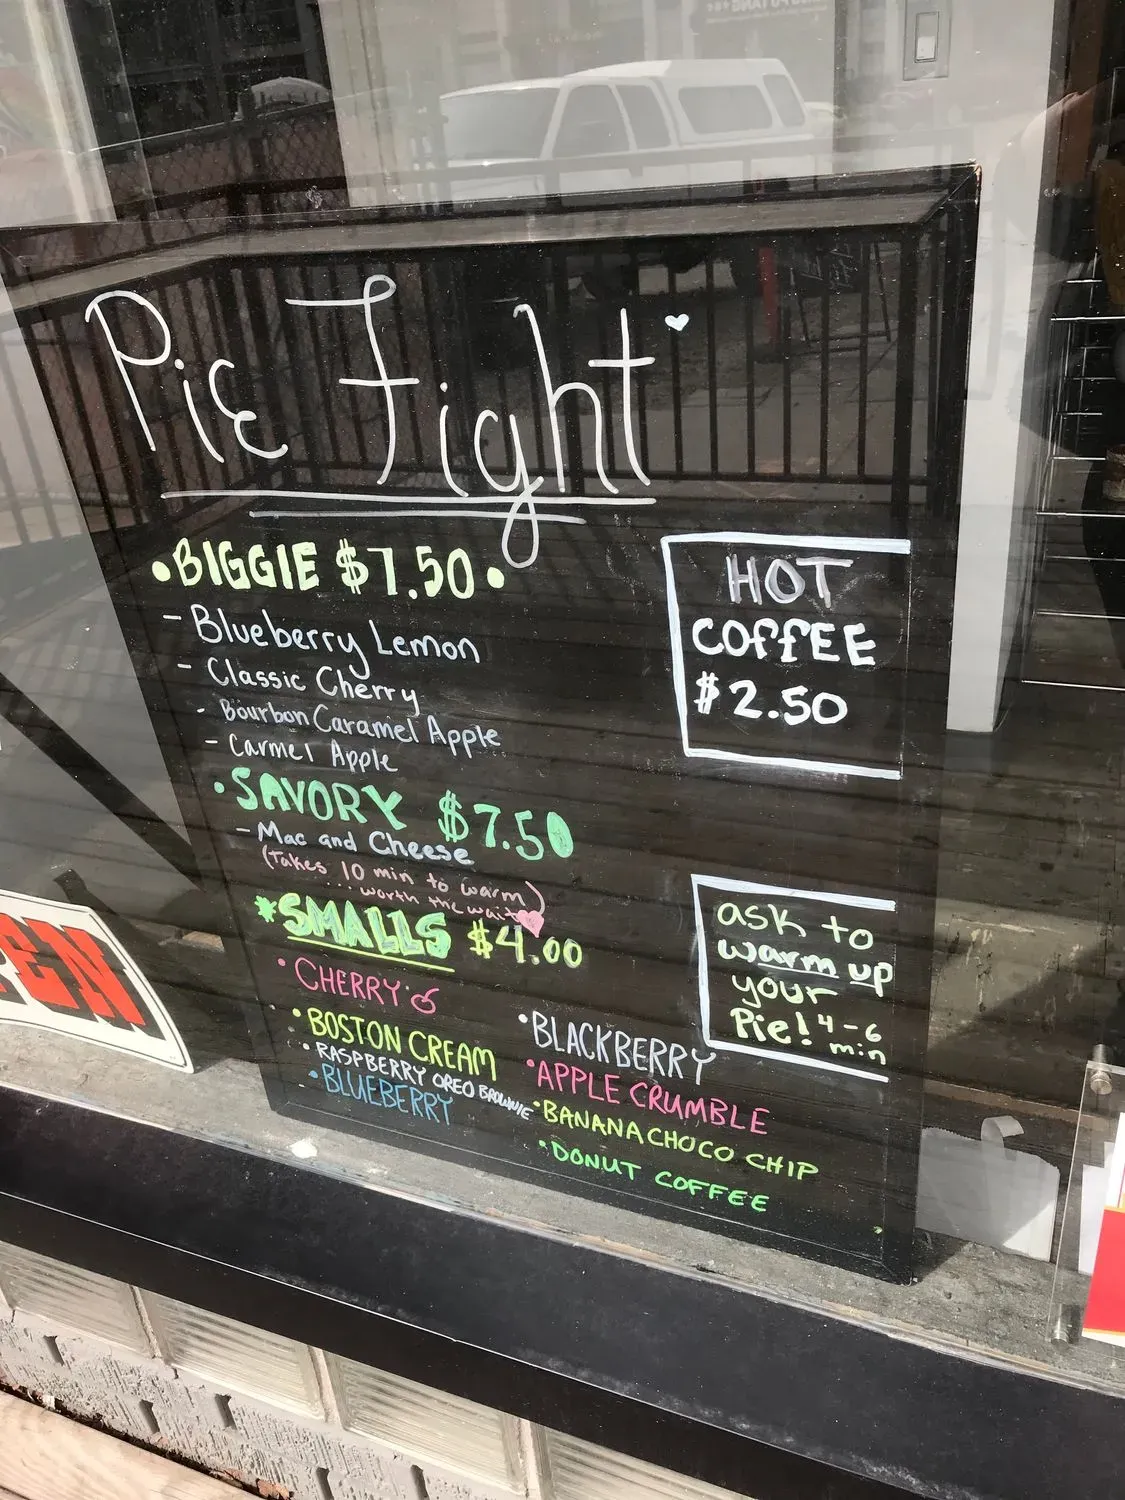 Pie Fight
•BIGGIE $7.50•
- Blueberry Lemon
- Classic Cherry
- Bourbon Caramel Apple
- Carmel Apple
•SAVORY $7.50
- Mac and Cheese
(takes 10 min to warm)
...worth the wait
*SMALLS $4.00
•CHERRY
•BOSTON CREAM
•RASPBERRY OREO BROWNIE
•BLUEBERRY
•BLACKBERRY
•APPLE CRUMBLE
•BANANA CHOCO CHIP
•DONUT COFFEE
HOT
COFFEE
$2.50
ask to
warm up
your
Pie! 4-6
min
PEN